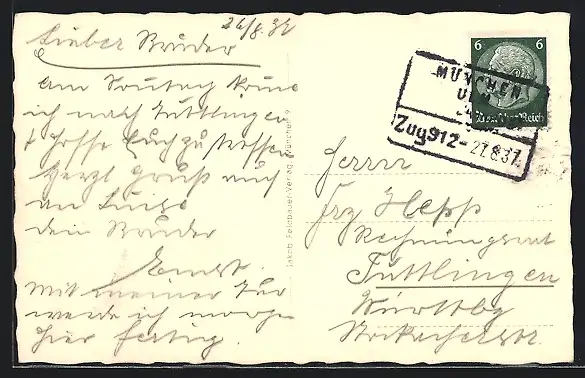 26/8.37
Lieber Bruder
Am Sontag komme
ich nach Tuttlingen
& hoffe Euch zu treffen
Herzl Gruß auch
an Luise
dein Bruder
Ernst.
Mit meiner Kur
werde ich morgen
hier fertig.
Jakob Feldbauer-Verlag, München 9
6 6
Deutsches Reich
MÜNCHEN
Zug 912 - 27.8.37
Herrn
Frz Hepp
Rechnungsrat
Tuttlingen
Württbg